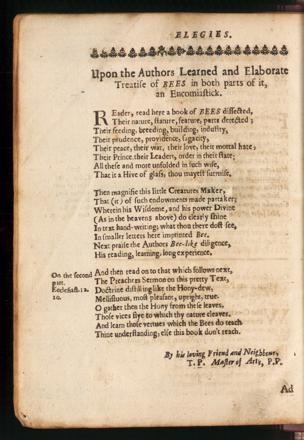 ELEGIES.
Upon the Authors Learned and Elaborate
Treatise of BEES in both parts of it,
an Encomiastick.
REader, read here a book of BEES dissected,
Their nature, stature, feature, parts detected;
Their feeding, breeding, building, industry,
Their prudence, providence, sagacity,
Their peace, their war, their love, their mortal hate;
Their Prince, their Leaders, order in their state;
All these and more unfolded in such wise,
That it a Hive of glass, thou mayest surmise.
Then magnifie this little Creatures Maker,
That (it) of such endowments made partaker;
Wherein his Wisdome, and his power Divine
(As in the heavens above) do clearly shine
In text hand-writing; what thou there dost see,
In smaller letters here imprinted Bee.
Next praise the Authors Bee-like diligence,
His reading, learning, long experience,
On the second part.
Ecclesiast. 12.
10.
And then read on to that which follows next,
The Preachers Sermon on this pretty Text,
Doctrine distilling like the Hony-dew,
Mellifluous, most pleasant, upright, true.
O gather then the Hony from these leaves,
Those vices flye to which thy nature cleaves.
And learn those vertues which the Bees do teach
Thine understanding, else this book don't reach.
By his loving Friend and Neighbour,
T. P. Master of Arts, P.P.
Ad